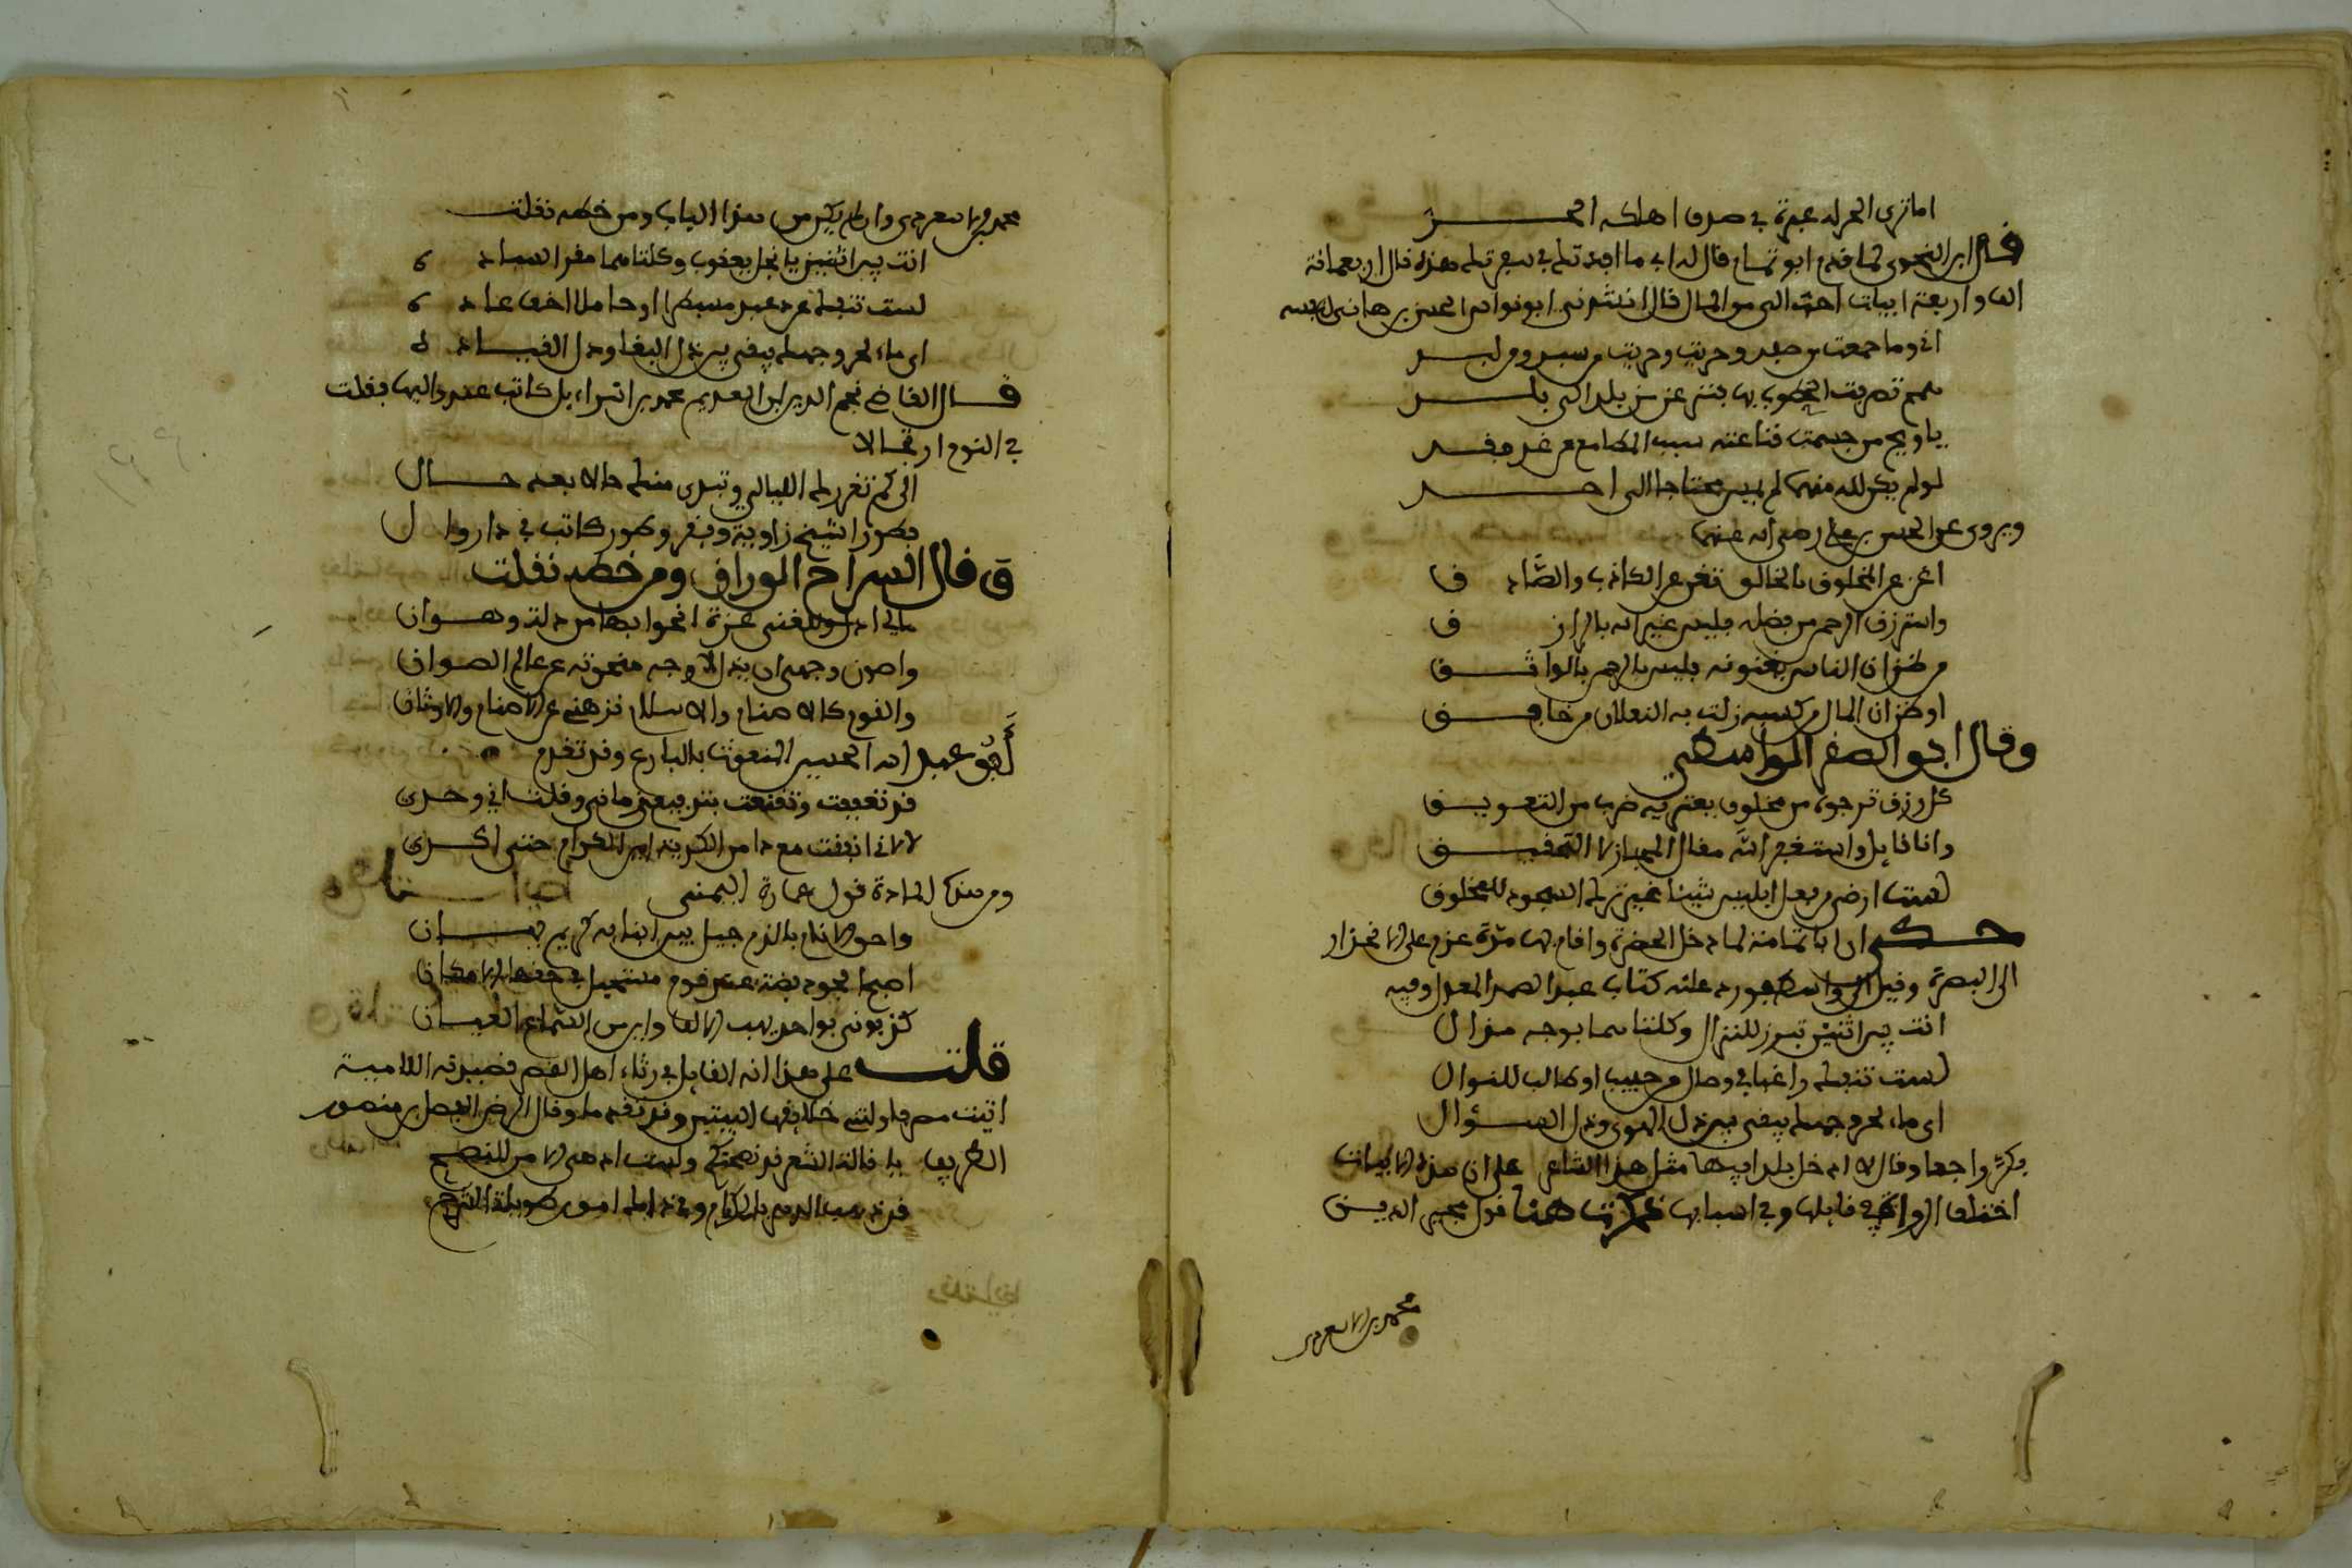 اما ترى البحر له عبرة في صدف اهلكه الدر
قال ابن النحوي لما قدم ابو تمام قال له ابي ما افدت في سفرتك هذه قال اربعمائة
الف واربعة ابيات احب الي من المال قال انشدني ابو نواس الحسن بن هاني لنفسه
اني وما جمعت من صفد وحويت من سبد ومن لبد
همم تصرفت الخطوب بها فنزعن من بلد الى بلد
يا ويح من حسمت قناعته سبب المطامع من غد فغد
لو لم يكن لله متهما لم يمس محتاجا الى احد
ويروى عن الحسن بن علي رضي الله عنهما
اغن عن المخلوق بالخالق تغن عن الكاذب والصادق
واسترزق الرحمن من فضله فليس غير الله بالرازق
من ظن ان الناس يغنونه فليس بالرحمن بالواثق
او ظن ان المال من كسبه زلت به النعلان من حالق
وقال ابو الصقر الواسطي
كل رزق ترجوه من مخلوق يعتريه ضرب من التعويق
وانا قايل واستغفر الله مقال المجاز لا التحقيق
لست ارضى من فعل ابليس شيئا غير ترك السجود للمخلوق
حكي ان ابا تمام لما دخل الحضرة واقام بها مدة عزم على الانحدار
الى البصرة وقيل الى واسط فورد عليه كتاب عبد الصمد المعذل وفيه
انت بين اثنتين تبرز للناس وكلتاهما بوجه مذال
لست تنفك راغبا في وصال من حبيب او طالب للنوال
اي ماء لحر وجهك يبقى بين ذل الهوى وذل السؤال
فكر راجعا وقال لا ادخل بلدا فيها مثل هذا الشاعر على ان هذه الابيات
اختلف الرواة في قايلها وفي اسبابها فذكرت هنا قول مجير الدين
محمد بن الاسعردي
محمد بن الاسعردي وان لم يكن من هذا الباب ومن خطه نقلت
انت بين اثنتين يا نجل يعقوب وكلتاهما مقر السياده
لست تنفك عن عبر مسبطرا او حاملا خف عاده
اي ماء لحر وجهك يبقى بين ذل البغا وذل القياده
قال القاضي نجم الدين ابن العديم محمد بن اسراءيل كاتب عند والينا فقلت
في النوم ارتجالا
الى كم تغررك الليالي وتبدي منك حالا بعد حال
فطورا شيخ زاوية وفقر وطورا كاتب في دار وال
قال السراج الوراق ومن خطه نقلت
مالي عزة انجوا بها من ذلة وهوان
واصون وجهي ان يذل لاوجه منحوتة من عالم الصوان
والقوم كالاصنام والاسلام نزهني عن الاصنام والاوثان
ابو عبد الله الحسين المنعوت بالبارع وقد تقدم
قد تعففت وتقنعت بتدبيعي زماني وقلت اني وحدي
لا لاني انفت مع ذا من الكدية اين الكرام حتى اكدي
ومن هذه المادة قول عمارة اليمني
واحق الانام بالذم جيل بين ابنايه كريم يهان
اصبح الجود بضد عند قوم مستحيل في حقه الامكان
كذبوني بواحد يهب الالف واين من السماع العيان
قلت على هذا انه القايل في رثاء اهل القصر قصيدته اللامية
اتيت مصر فاولتني خلايفها البيتين وقد تقدما وقال الرضي الفضل بن منصور
الظريف يا قالة الشعر قد نصحتكم ولست ادهى الا من النصح
قد ذهب الدهر بالكرام وفي ذاك امور طويلة الشرح
وقلت ايضا